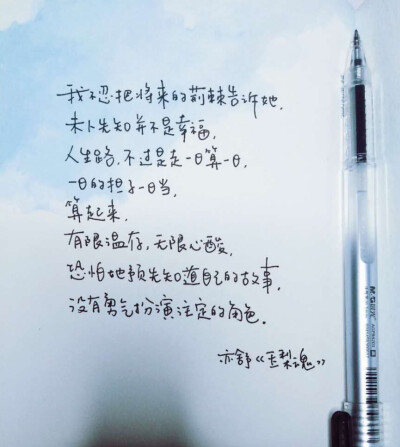 我不忍把将来的荆棘告诉她,
未卜先知并不是幸福,
人生路,不过是走一日算一日,
一日的担子一日当,
算起来,
有限温存,无限心酸,
恐怕她预先知道自己的故事,
没有勇气扮演注定的角色.
亦舒《玉梨魂》
M&G